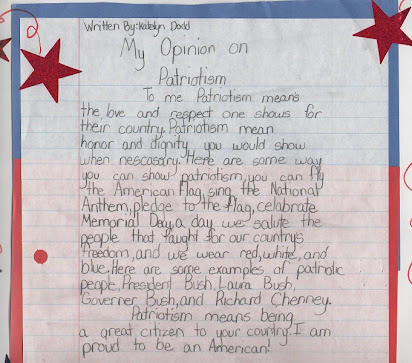 Written By: Katelyn Dodd
My Opinion on
Patriotism
To me Patriotism means
the love and respect one shows for
their country. Patriotism mean
honor and dignity you would show
when nescasary. Here are some way
you can show patriotism, you can fly
the American Flag, sing the National
Anthem, pledge to the flag, celebrate
Memorial Day, a day we salute the
people that faught for our country's
freedom, and we wear red, white, and
blue. Here are some examples of patriotic
people, President Bush, Laura Bush,
Governer Bush, and Richard Chenney.
Patriotism means being
a great citizen to your country. I am
proud to be an American!